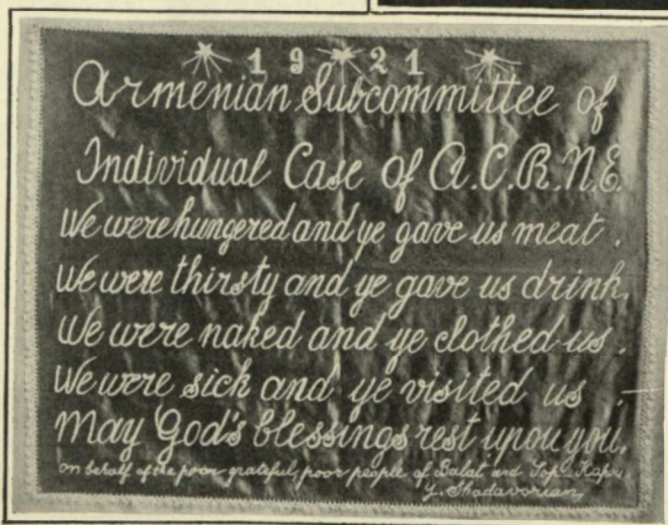 1921
Armenian Subcommittee of
Individual Case of A.C.R.N.E.
We were hungered and ye gave us meat.
We were thirsty and ye gave us drink.
We were naked and ye clothed us.
We were sick and ye visited us.
May God's blessings rest upon you.
on behalf of the poor grateful, poor people of Balat and Top-Kapu
Y. Shadavorian